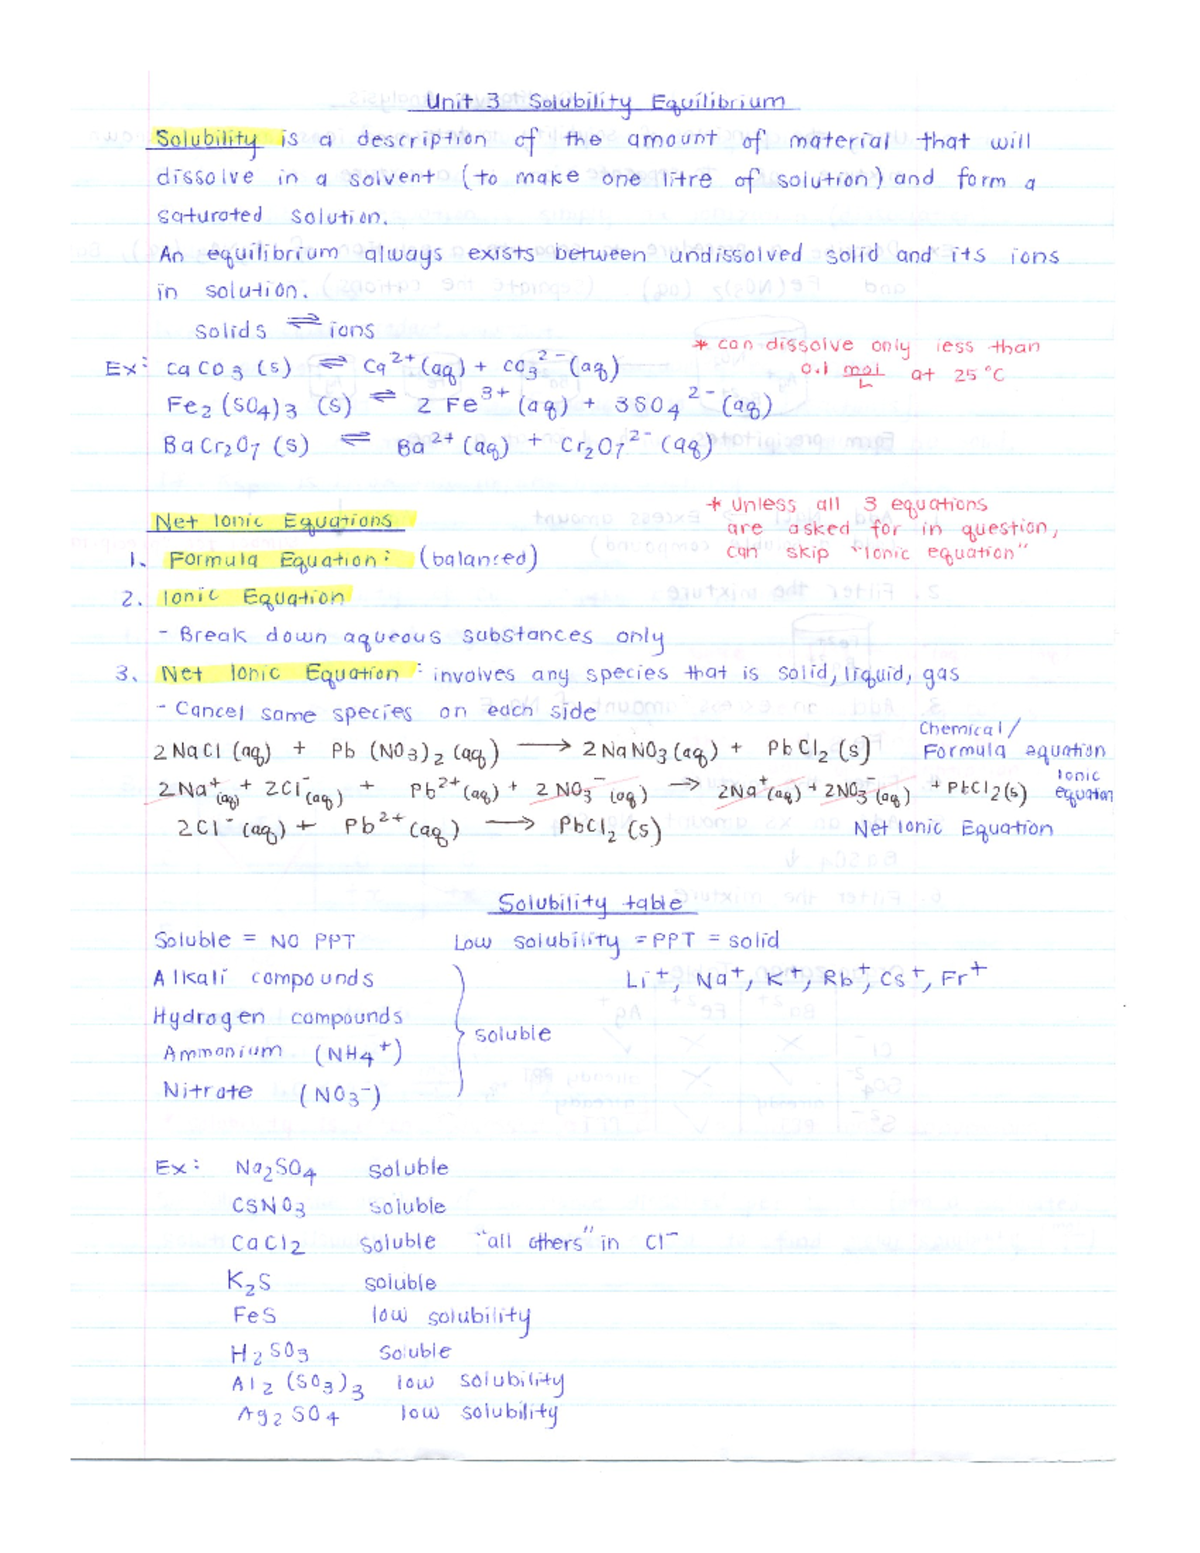 Unit 3 Solubility Equilibrium
Solubility is a description of the amount of material that will
dissolve in a solvent (to make one litre of solution) and form a
saturated solution.
An equilibrium always exists between undissolved solid and its ions
in solution.
solids ⇌ ions
* can dissolve only less than
0.1 mol/L at 25 °C
Ex: CaCO3 (s) ⇌ Ca2+ (aq) + CO3 2- (aq)
Fe2(SO4)3 (s) ⇌ 2 Fe3+ (aq) + 3SO4 2- (aq)
BaCr2O7 (s) ⇌ Ba2+ (aq) + Cr2O7 2- (aq)
* Unless all 3 equations
are asked for in question,
can skip "Ionic equation"
Net Ionic Equations
1. Formula Equation: (balanced)
2. Ionic Equation
- Break down aqueous substances only
3. Net Ionic Equation: involves any species that is solid, liquid, gas
- Cancel same species on each side
2NaCl (aq) + Pb(NO3)2 (aq) → 2NaNO3 (aq) + PbCl2 (s) Chemical/ Formula equation
2Na+ (aq) + 2Cl- (aq) + Pb2+ (aq) + 2NO3- (aq) → 2Na+ (aq) + 2NO3- (aq) + PbCl2 (s) Ionic equation
2Cl- (aq) + Pb2+ (aq) → PbCl2 (s) Net Ionic Equation
Solubility table
Soluble = NO PPT Low solubility = PPT = solid
Alkali compounds Li+, Na+, K+, Rb+, Cs+, Fr+
Hydrogen compounds
soluble
Ammonium (NH4+)
Nitrate (NO3-)
Ex: Na2SO4 soluble
CSNO3 soluble
CaCl2 soluble "all others" in Cl-
K2S soluble
FeS low solubility
H2SO3 soluble
Al2(SO3)3 low solubility
Ag2SO4 low solubility